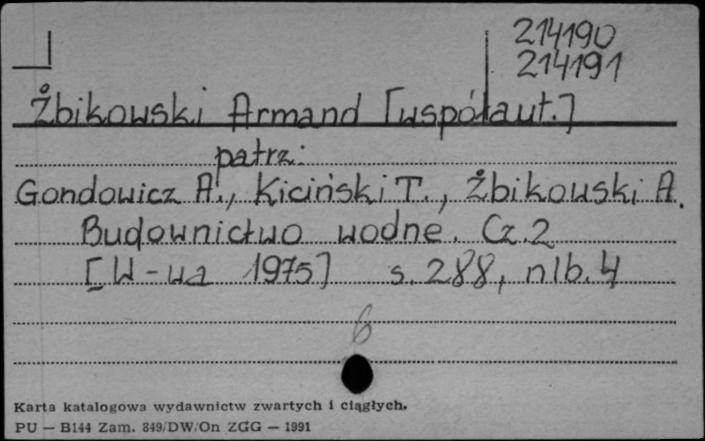 214190
214191
Żbikowski Armand [współaut.]
patrz:
Gondowicz A., Kiciński T., Żbikowski A.
Budownictwo wodne. Cz. 2
[W-wa 1975] s. 288, nlb. 4
6
Karta katalogowa wydawnictw zwartych i ciągłych.
PU — B144 Zam. 849/DW/On ZGG — 1991